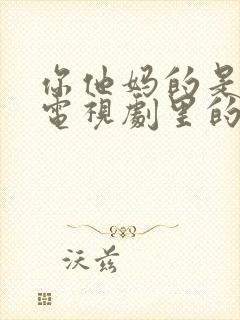 你他妈的是
電視劇里的
沃兹